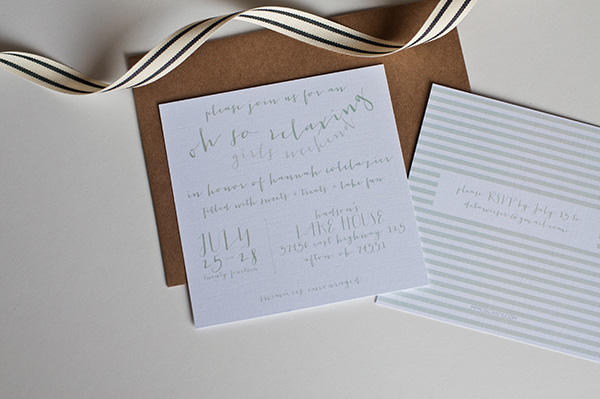 please join us for an
oh so relaxing
girls weekend
in honor of hannah
filled with sweets + treats + lake fun
JULY
25-28
twenty fourteen
hudson's
LAKE HOUSE
east highway
afton, ok 74331
encouraged
please RSVP by July 15 to